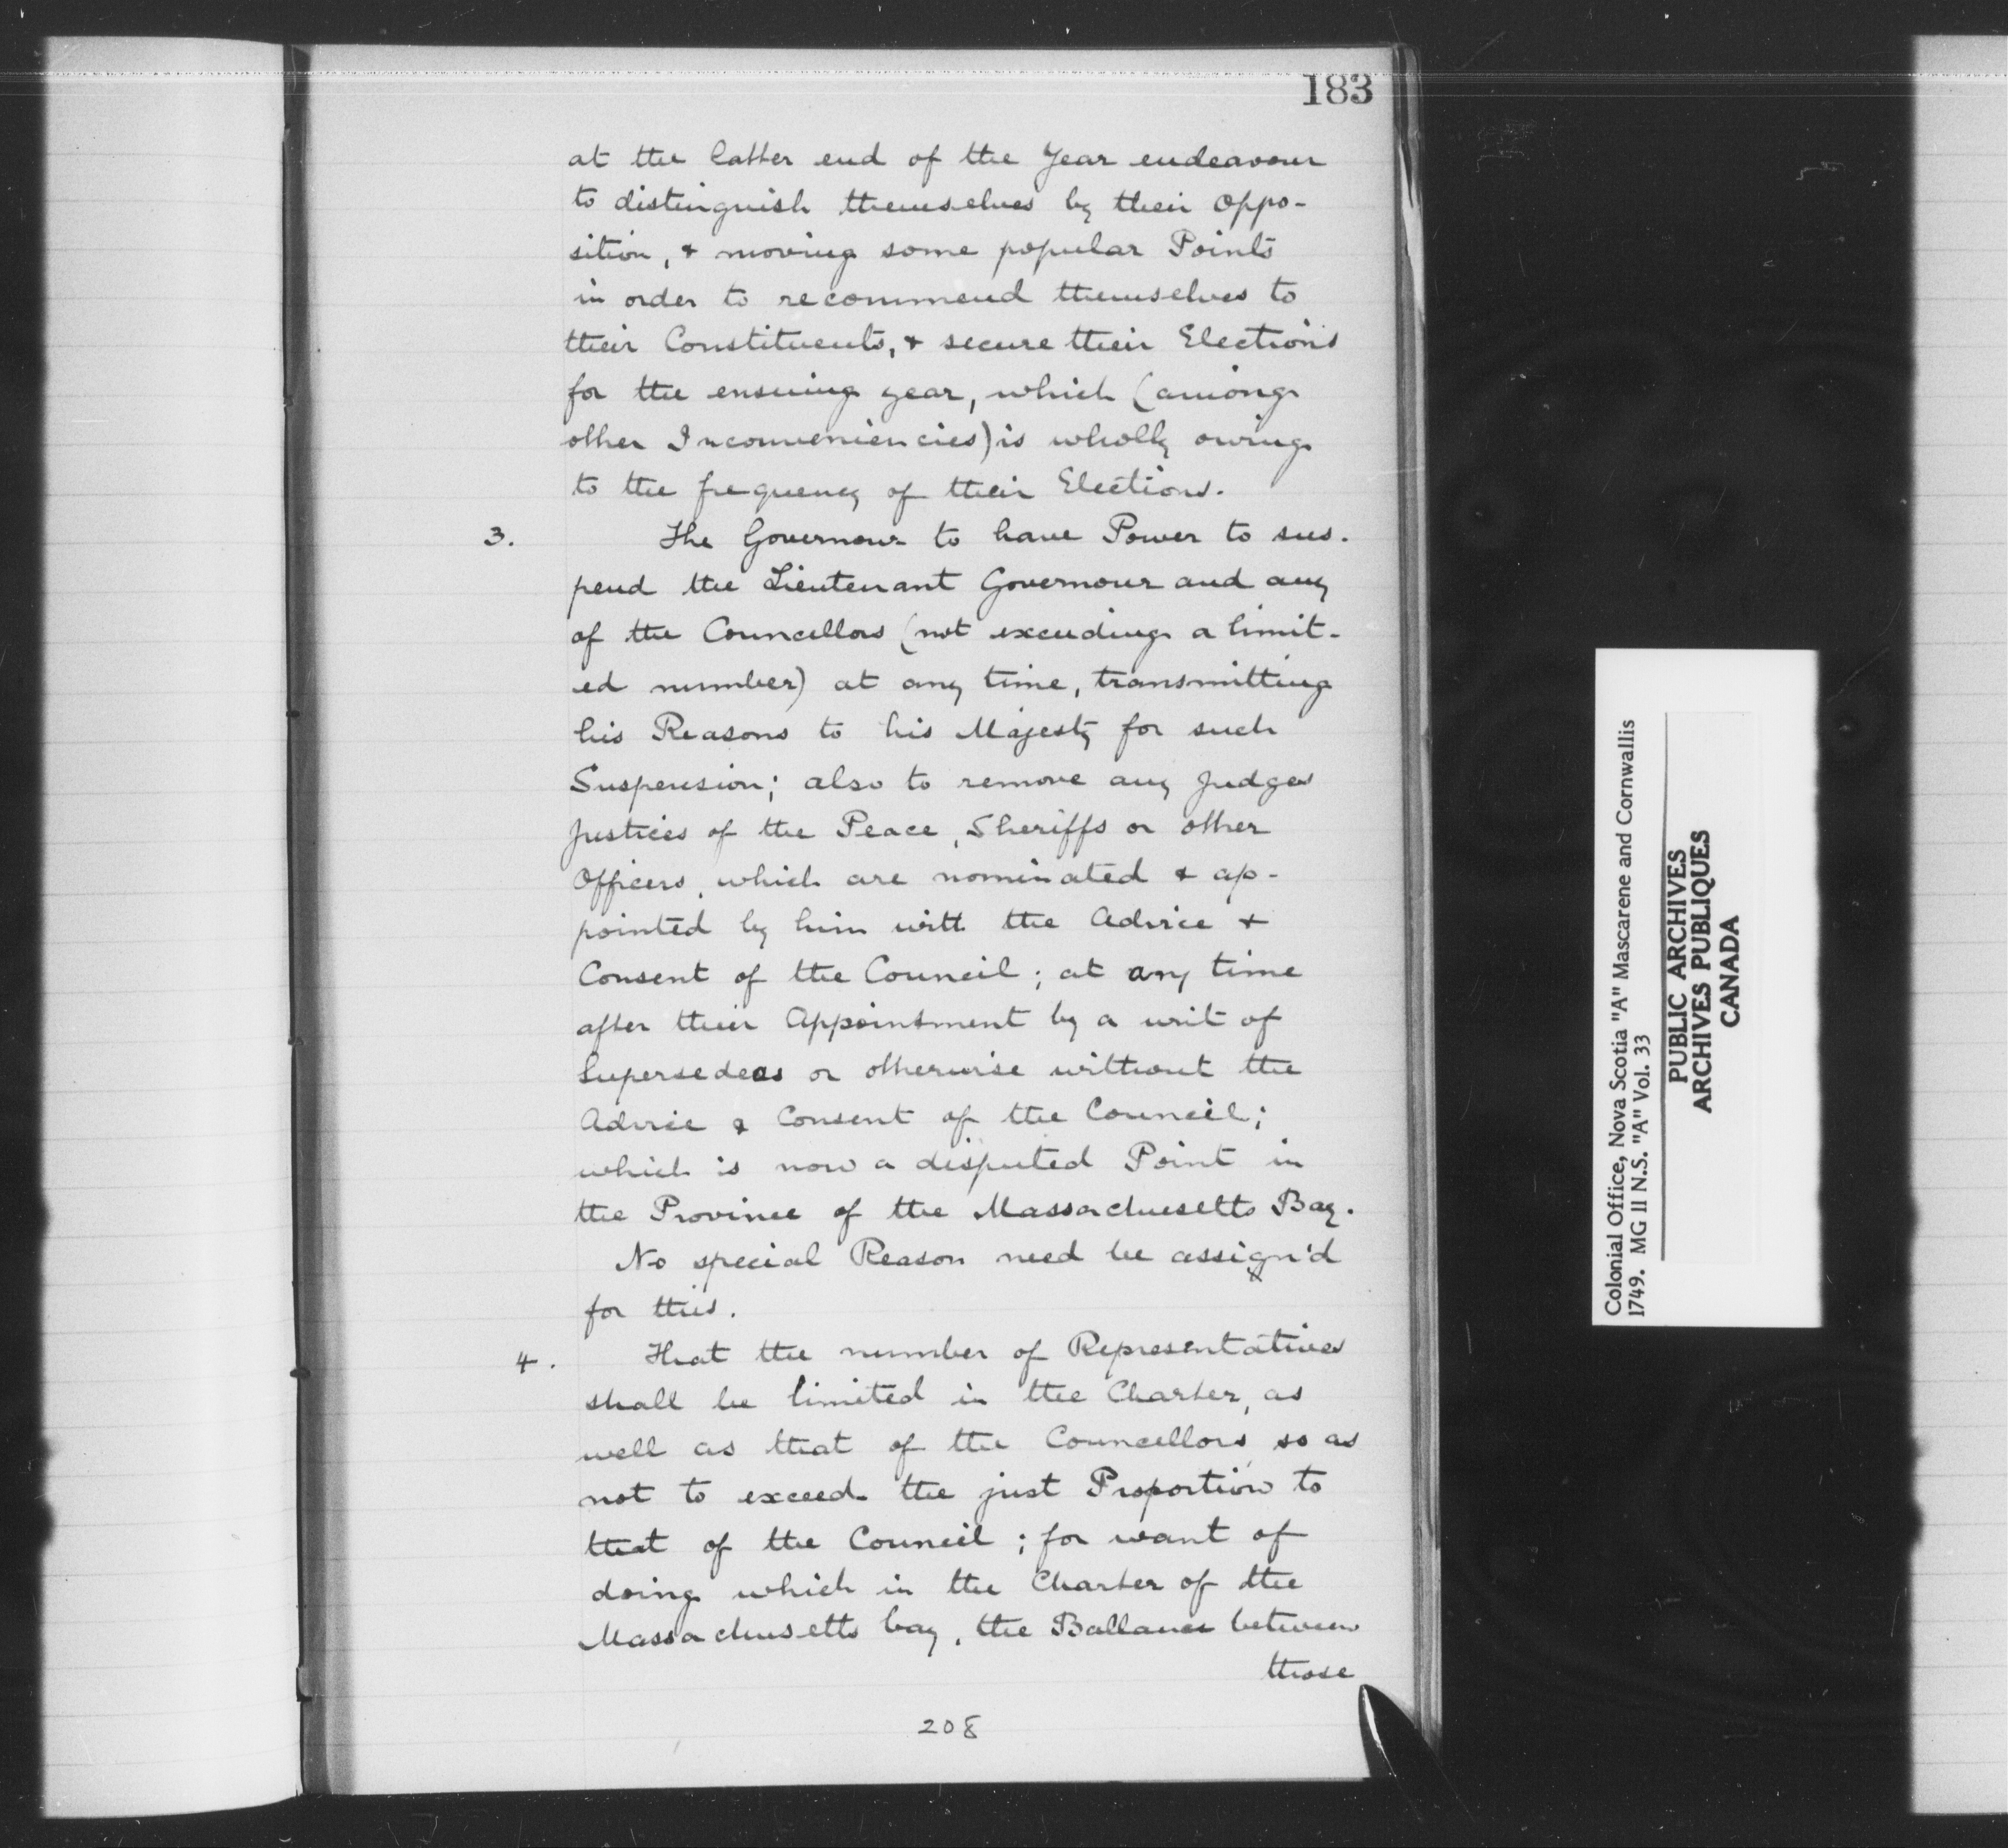 183
at the latter end of the Year endeavour
to distinguish themselves by their Oppo-
sition, & moving some popular Points
in order to recommend themselves to
their Constituents, & secure their Elections
for the ensuing year, which (among
other Inconveniencies) is wholly owing
to the frequency of their Elections.
3. The Governour to have Power to sus-
pend the Lieutenant Governour and any
of the Councellors (not exceeding a limit-
ed number) at any time, transmitting
his Reasons to his Majesty for such
Suspension; also to remove any Judges
Justices of the Peace, Sheriffs or other
Officers, which are nominated & ap-
pointed by him with the Advice &
Consent of the Council; at any time
after their Appointment by a writ of
Supersedeas or otherwise without the
Advice & Consent of the Council;
which is now a disputed Point in
the Province of the Massachusetts Bay.
No special Reason need be assign'd
for this.
4. That the number of Representatives
shall be limited in the Charter, as
well as that of the Councellors, so as
not to exceed the just Proportion to
that of the Council; for want of
doing which in the Charter of the
Massachusetts bay, the Ballance between
those
208
Colonial Office, Nova Scotia "A" Mascarene and Cornwallis
1749. MG II N.S. "A" Vol. 33
PUBLIC ARCHIVES
ARCHIVES PUBLIQUES
CANADA